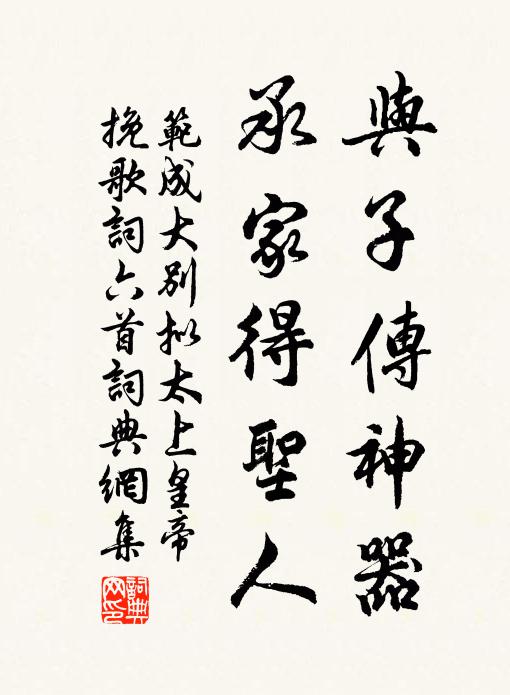 與子傳神器
承家得聖人
範成大別擬太上皇帝
挽歌詞六首詞典網集
詞典網印